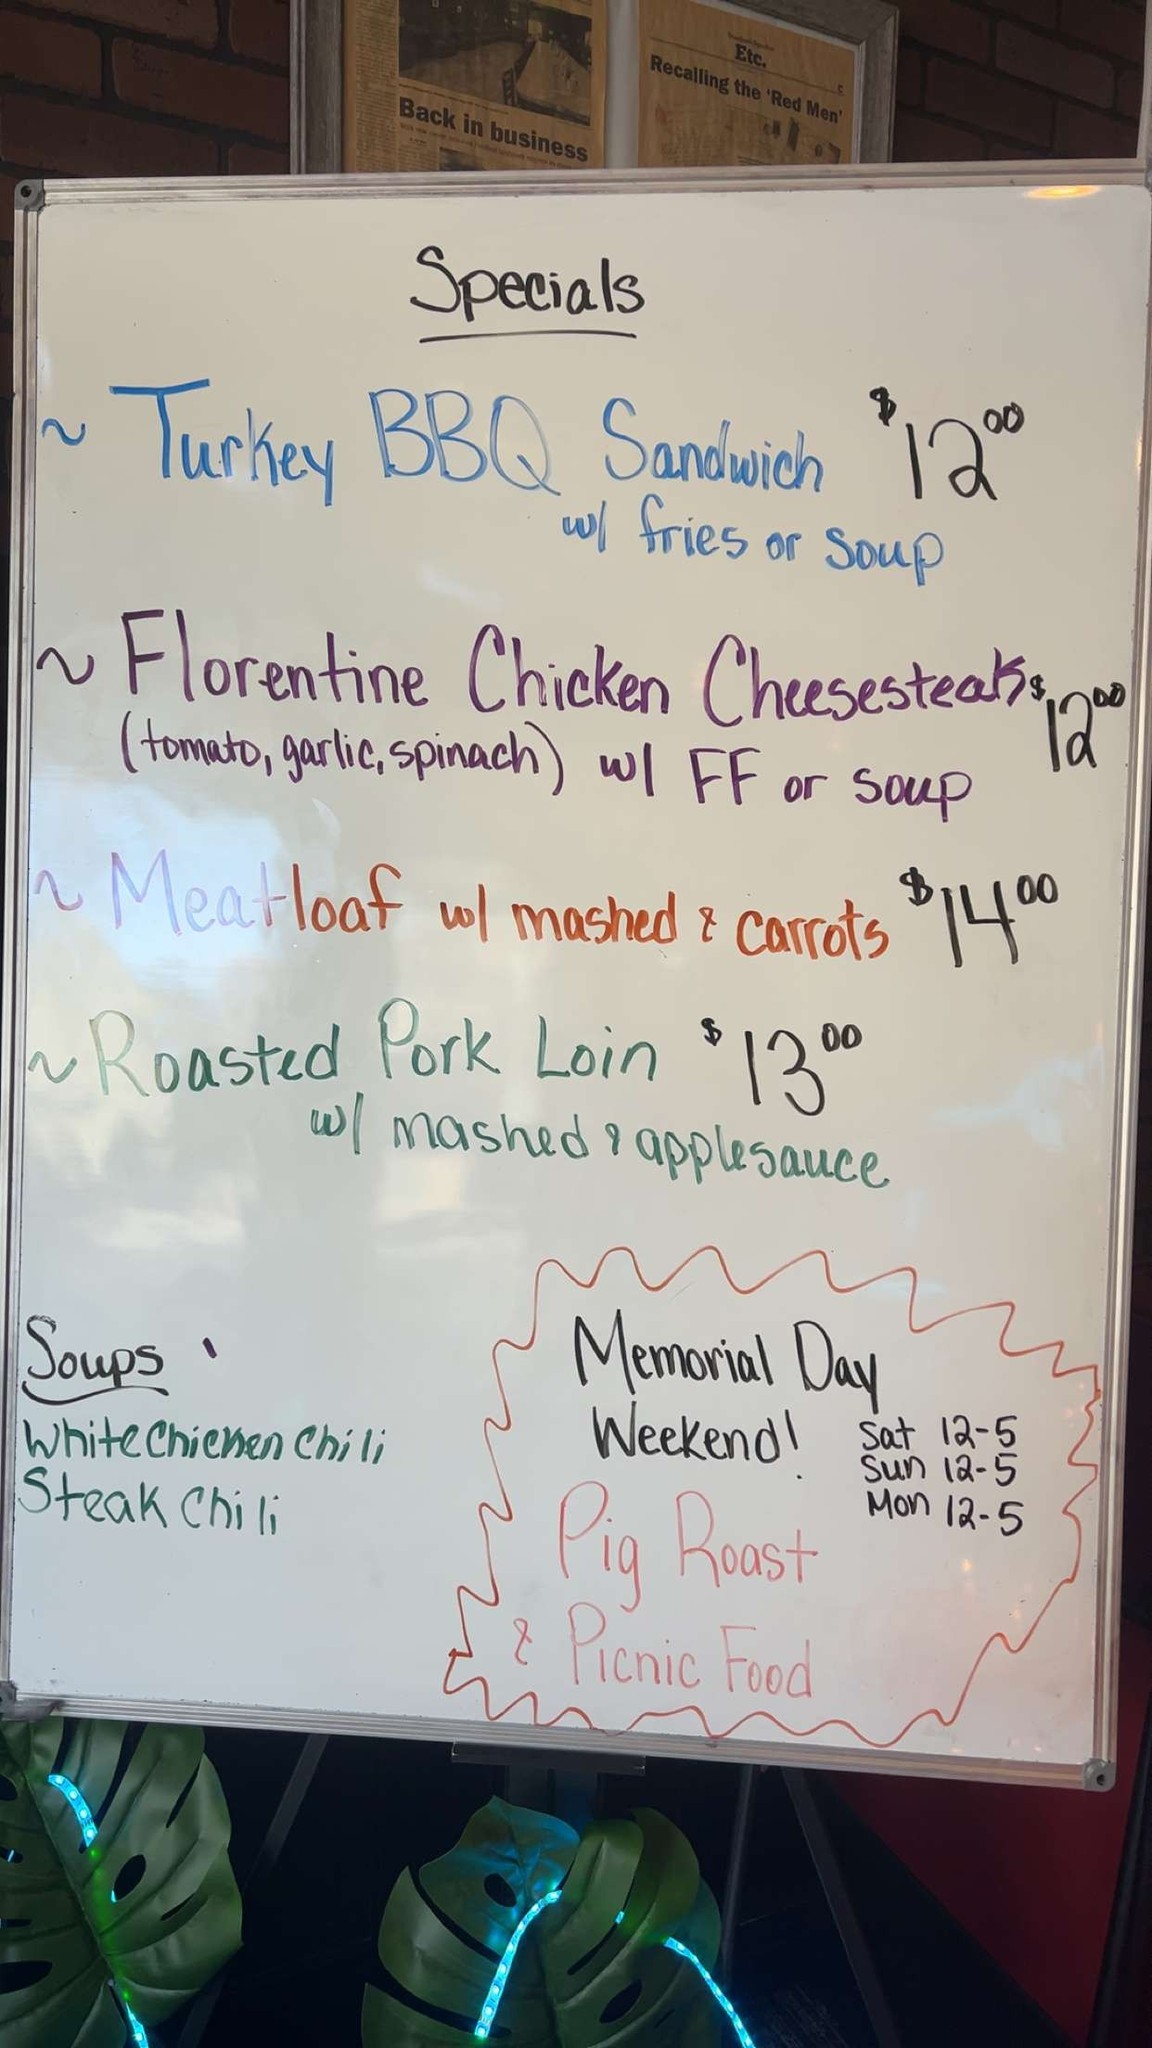 Etc.
Recalling the 'Red Men'
Back in business
Specials
~ Turkey BBQ Sandwich $12.00
w/ fries or soup
~ Florentine Chicken Cheesesteak $12.00
(tomato, garlic, spinach) w/ FF or soup
~ Meatloaf w/ mashed & carrots $14.00
~ Roasted Pork Loin $13.00
w/ mashed & applesauce
Soups
White Chicken Chili
Steak Chili
Memorial Day
Weekend!
Sat 12-5
Sun 12-5
Mon 12-5
Pig Roast
& Picnic Food